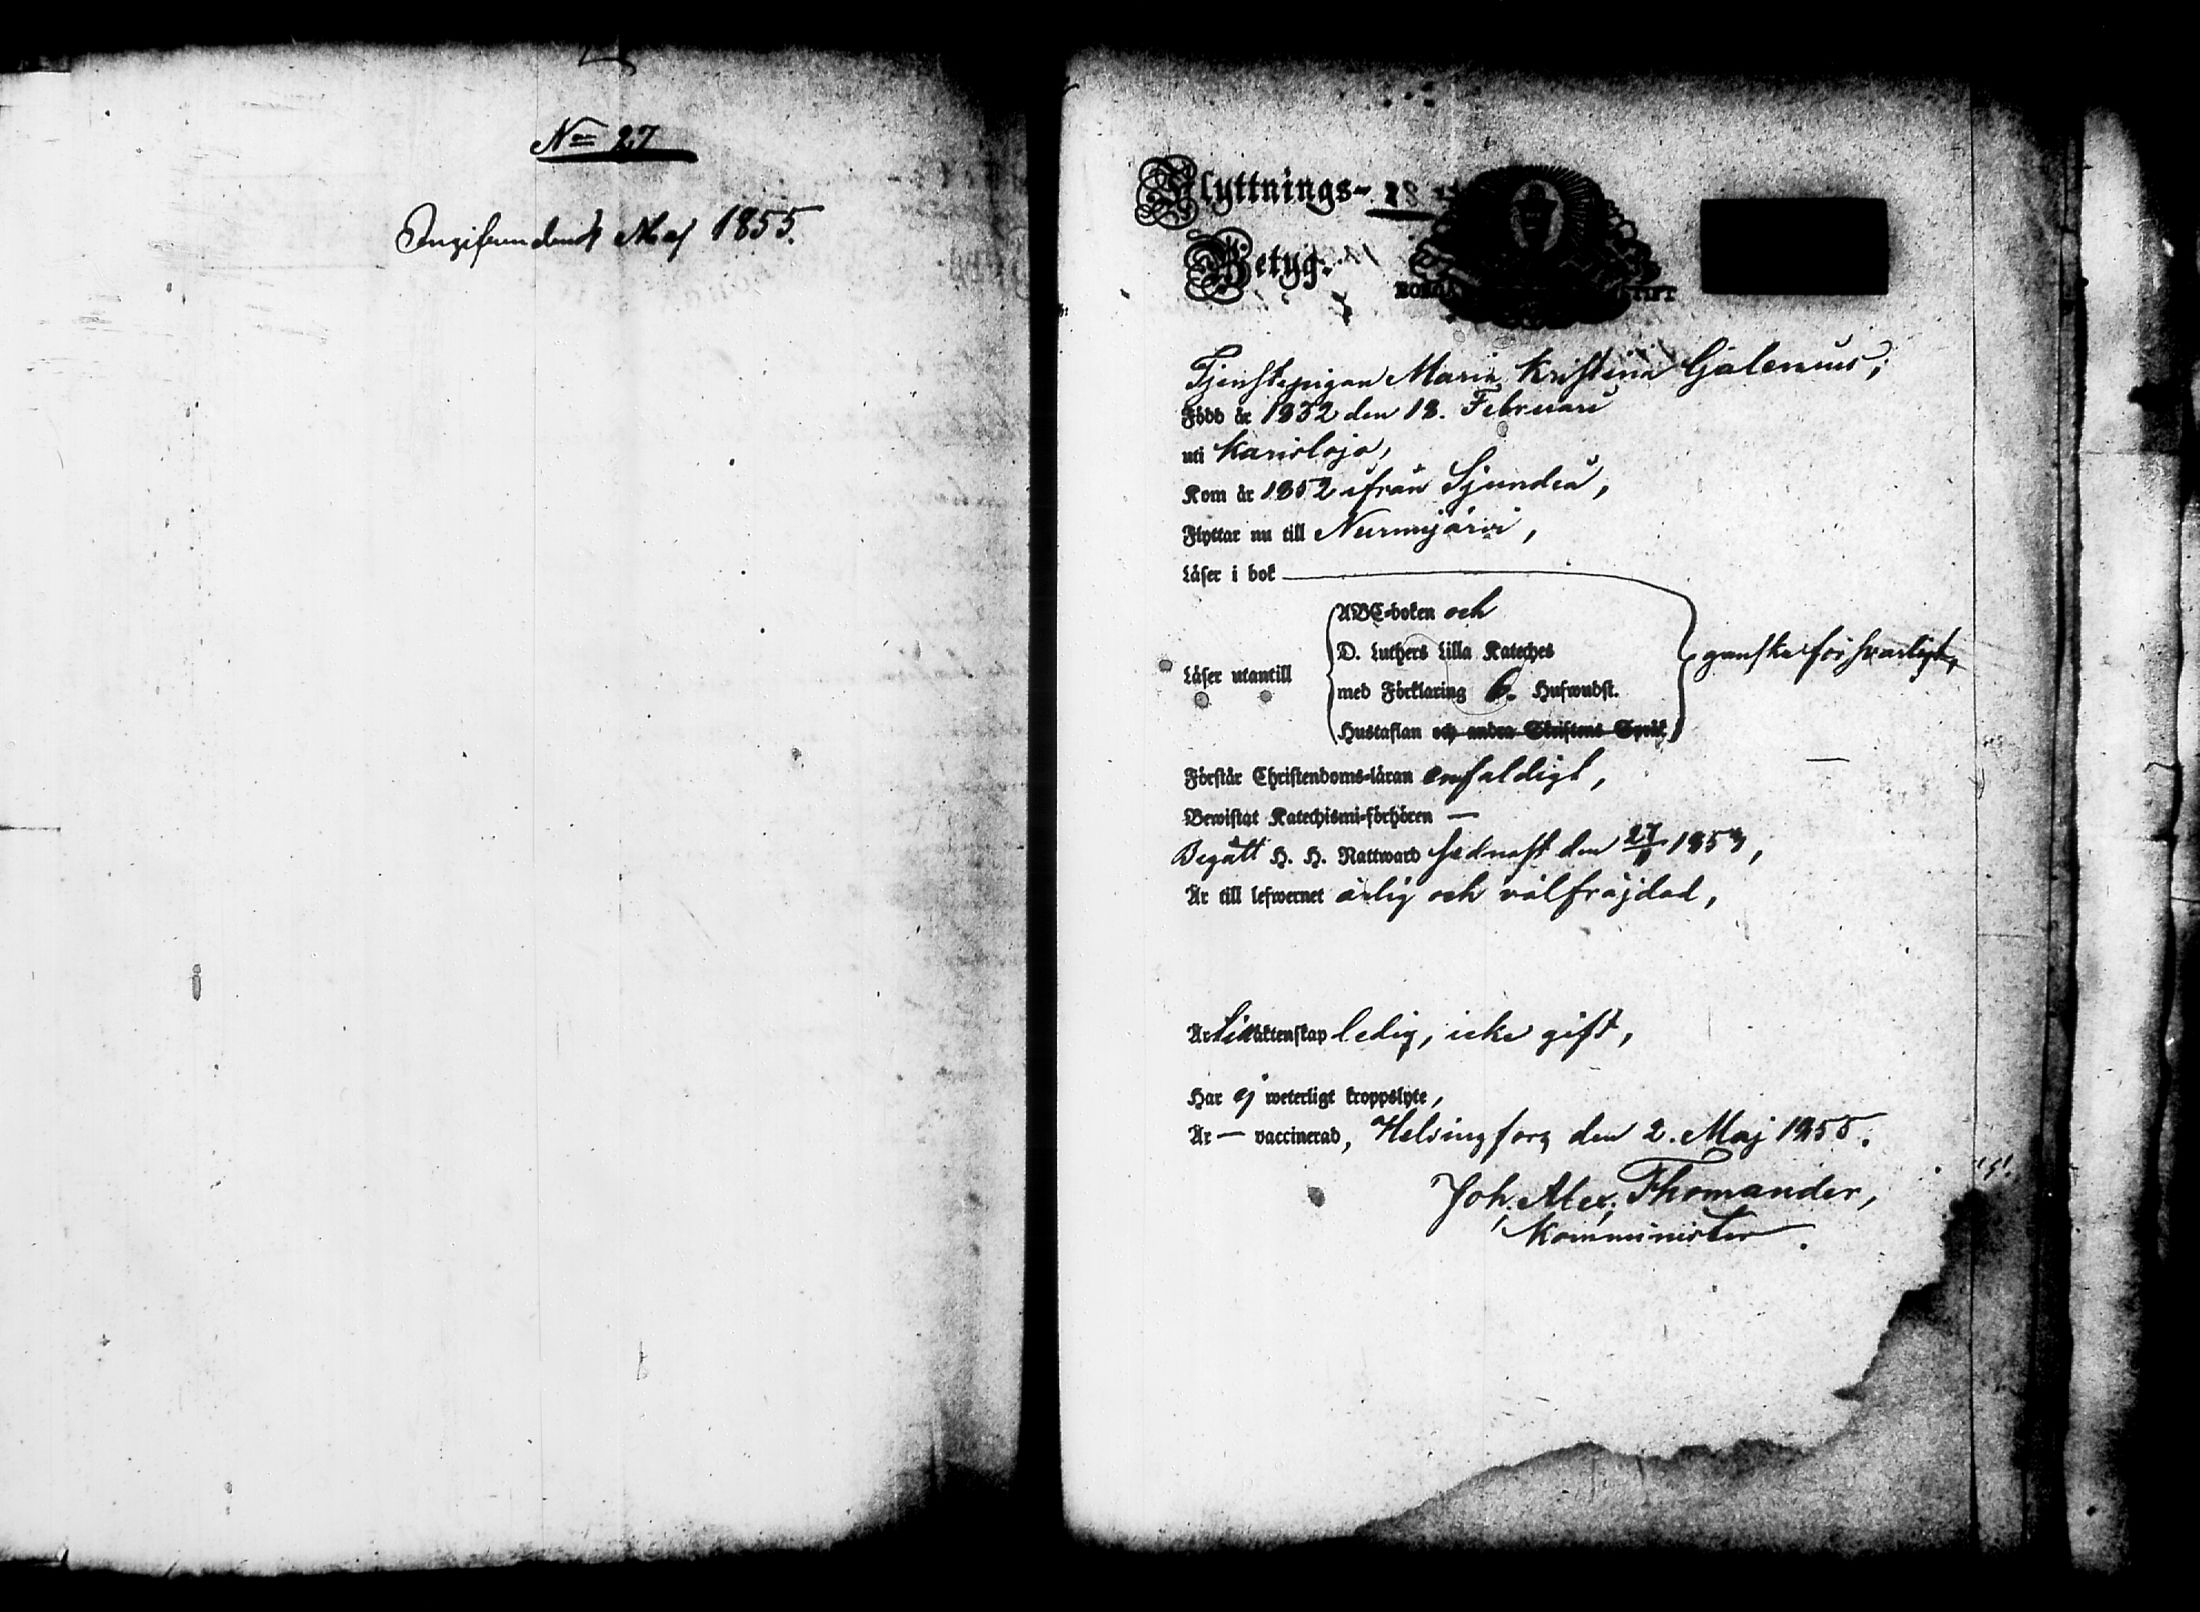 No 27
Maj 1855.
Flyttnings-
28
Betyg.
BORGÅ STIFT
Tjenstepigan Maria Kristina Galenius,
Född år 1832 den 18. Februari
uti Karislojo,
Kom år 1852 ifrån Sjundeå,
Flyttar nu till Nurmijärvi,
Läser i bok
ABC-boken och
D. Luthers Lilla Kateches
Läser utantill
med Förklaring 6. Hufwudst.
Hustaflan och andra Skriftens Språk
ganska försvarligt,
Förstår Christendoms-läran enfaldigt,
Bewistat Katechismi-förhören —
Begått H. H. Nattward sednast den 27 1853,
Är till lefwernet ärlig och välfräjdad,
Är till äktenskap ledig, icke gift,
Har ej weterligt kroppslyte,
Är — vaccinerad, Helsingfors den 2. Maj 1855.
Joh. Alex. Thomander,
Komminister.